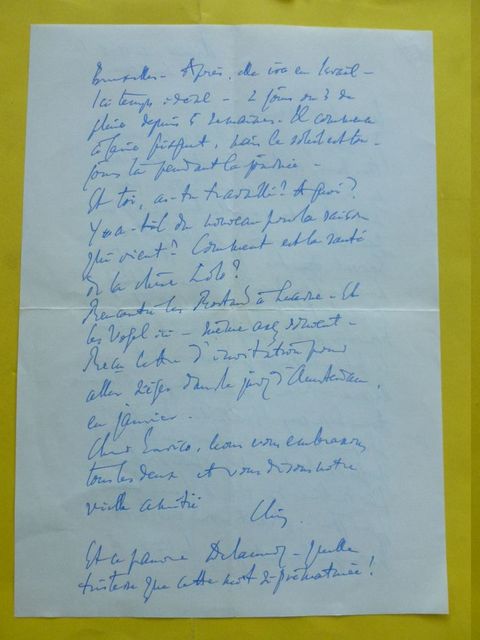 Bruxelles - Après, elle ira en Israël -
Ici temps idéal - 2 jours ou 3 de
pluie depuis 5 semaines. Il commence
à faire frisquet, mais le soleil est tou-
jours là pendant la journée -
Et toi, as-tu travaillé? A quoi?
Y a-t-il du nouveau pour la saison
qui vient? Comment est la santé
de la chère Lole?
Rencontré les Rostand à Lucerne - Et
les Vogel ici - même assez souvent -
Reçu lettre d'invitation pour
aller siéger dans le jury d'Amsterdam,
en janvier.
Cher Enrico, nous vous embrassons
tous les deux et vous disons notre
vieille amitié
Et ce pauvre Delannoy - quelle
tristesse que cette mort si prématurée!